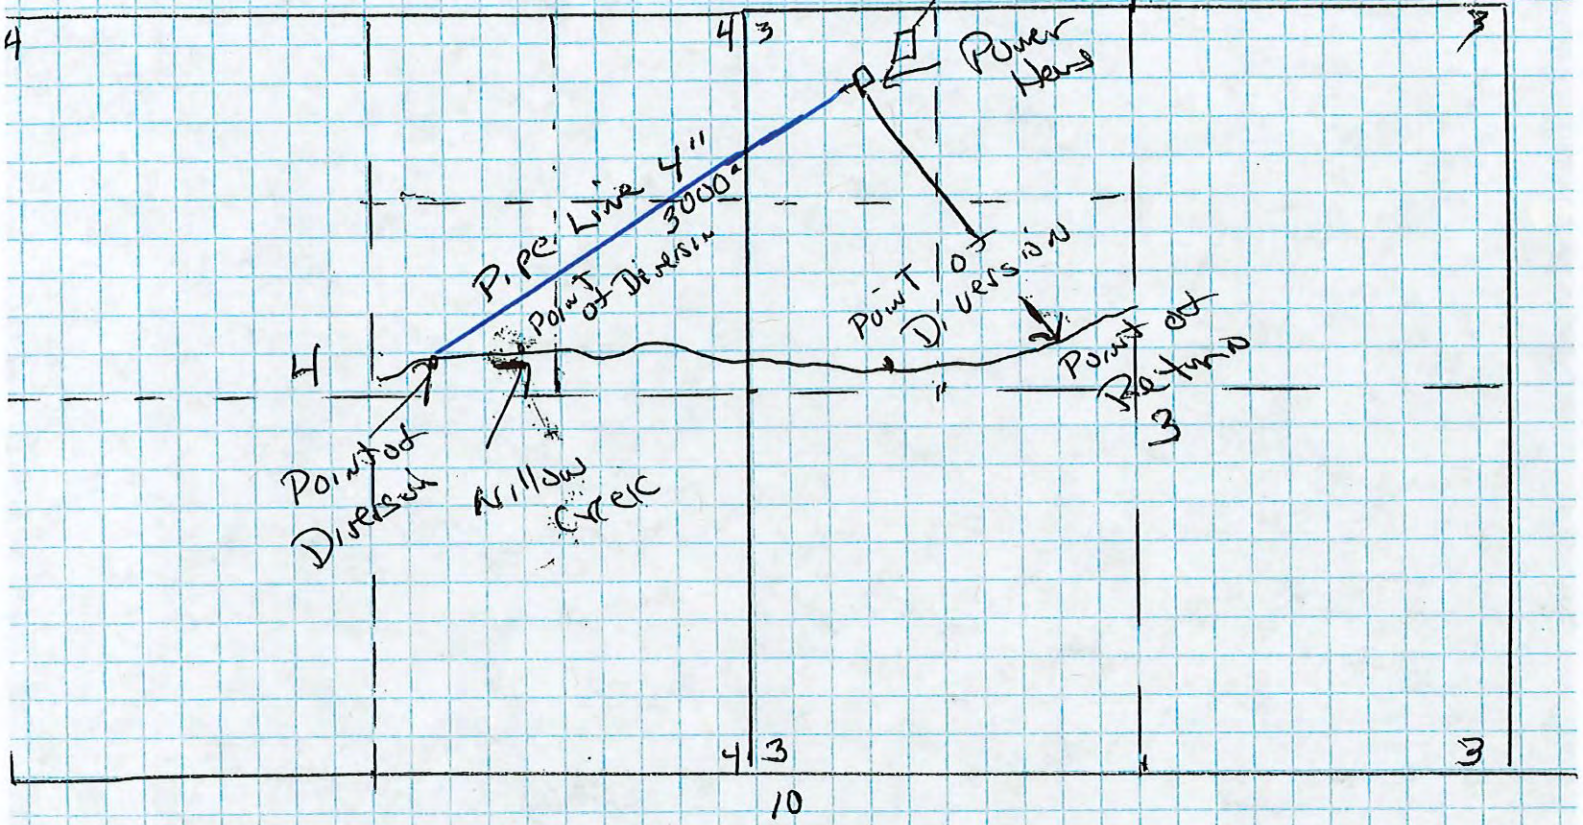 4
4 3
3
Power
Hous
Pipe Line 4"
3000'
Point
of Diversin
Point of
Diversion
4
Point of
Return
3
Point of
Diversoin
Willow
Creek
4 3
3
10